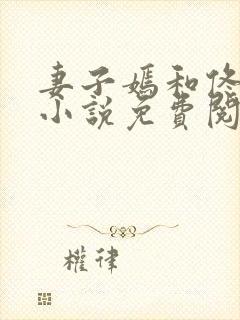 妻子嫣和佟
小說免費閱
權律